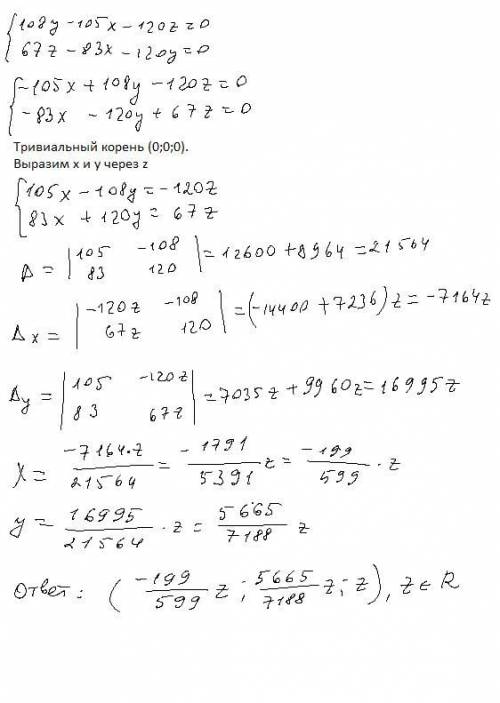 108y - 105x - 120z = 0
67z - 83x - 120y = 0
-105x + 108y - 120z = 0
-83x - 120y + 67z = 0
Тривиальный корень (0;0;0).
Выразим x и y через z
105x - 108y = -120z
83x + 120y = 67z
Δ = | 105 -108 | = 12600 + 8964 = 21564
83 120
Δx = | -120z -108 | = (-14400 + 7236) z = -7164z
67z 120
Δy = | 105 -120z | = 7035z + 9960z = 16995z
83 67z
X = -7164·z / 21564 = -1791 / 5391 z = -199 / 599 · z
y = 16995 / 21564 · z = 5665 / 7188 z
Ответ: ( -199 / 599 z ; 5665 / 7188 z ; z ), z ∈ R